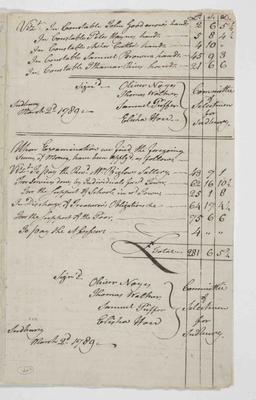 Viz. In Constable John Goodenow's hands 2 6 5¾
In Constable Peter Haynes hands 5 8 4½
In Constable Asher Cutler hands 4 10 -
In Constable Samuel Browns hands 45 9 3
In Constable hands 21 6 6
Sign'd Oliver Noyes
Thomas Walker
Samuel Puffer
Elisha Hoed
Committee
Selectmen
for
Sudbury
Sudbury
March 2d 1789
Upon Examination we find the foregoing
Sums of Money have been Apply'd as follows
Viz. To pay the Revd Mr Bigelow Sallery 43 7 1
For Services done by Individuals for sd Town 62 16 10¼
For the Support of Schools in sd Town 25 1 8
In Discharge of Treasurers Obligations &c 64 17 4½
For the Support of the Poor 75 6 6
To pay the Assessors 4 " "
£ Total 281 6 5¾
Sign'd
Oliver Noyes
Thomas Walker
Samuel Puffer
Elisha Hoed
Committee
of
Selectmen
for
Sudbury
Sudbury
March 2d 1789